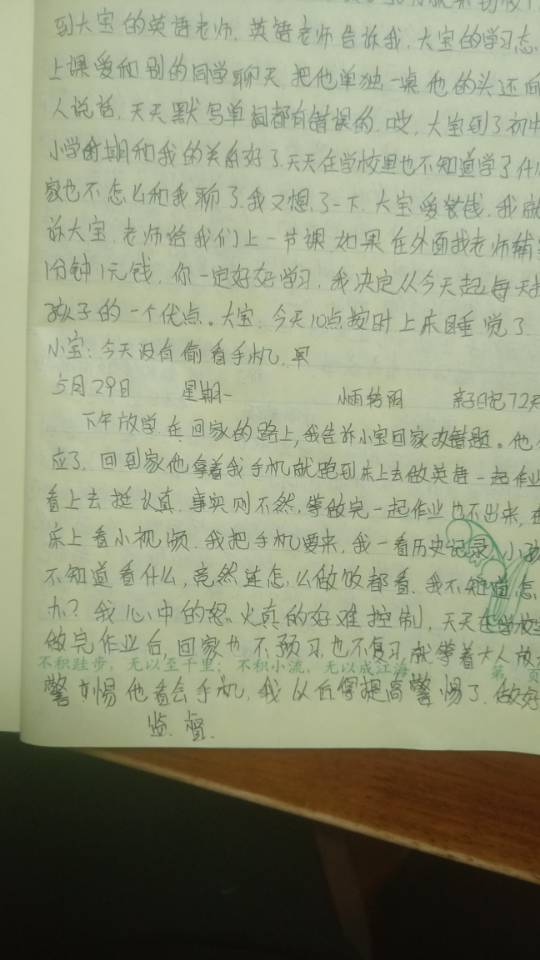 到大宝的英语老师，英语老师告诉我，大宝的学习态
上课爱和别的同学聊天，把他单独一桌他的头还
人说话，天天默写单词都有错误的，哎，大宝到了初中
小学时期和我的关系好了，天天在学校里也不知道学了什
家也不怎么和我聊了，我又想了一下，大宝爱攒钱，我就
诉大宝，老师给我们上一节课，如果在外面找老师辅
1分钟1元钱，你一定好好学习，我决定从今天起，每天
孩子的一个优点。大宝：今天10点按时上床睡觉了
小宝：今天没有偷看手机，早
5月29日 星期一 72天
下午放学，在回家的路上，我告诉小宝回家改错题。他
应了，回到家他拿着我手机就跑到床上去做英语一起作业
看上去挺认真，事实则不然，等做完一起作业也不出来，在
床上看小视频，我把手机要来，我一看历史记录，小孩
不知道看什么，竟然连怎么做饭都看，我不知道怎
办？我心中的怒火真的好难控制，天天在学校里
做完作业后，回家也不预习，也不复习，就拿着大人
不积跬步，无以至千里；不积小流，无以成江海 第 页
警惕他看会手机，我以后得提高警惕了，做好
监督。